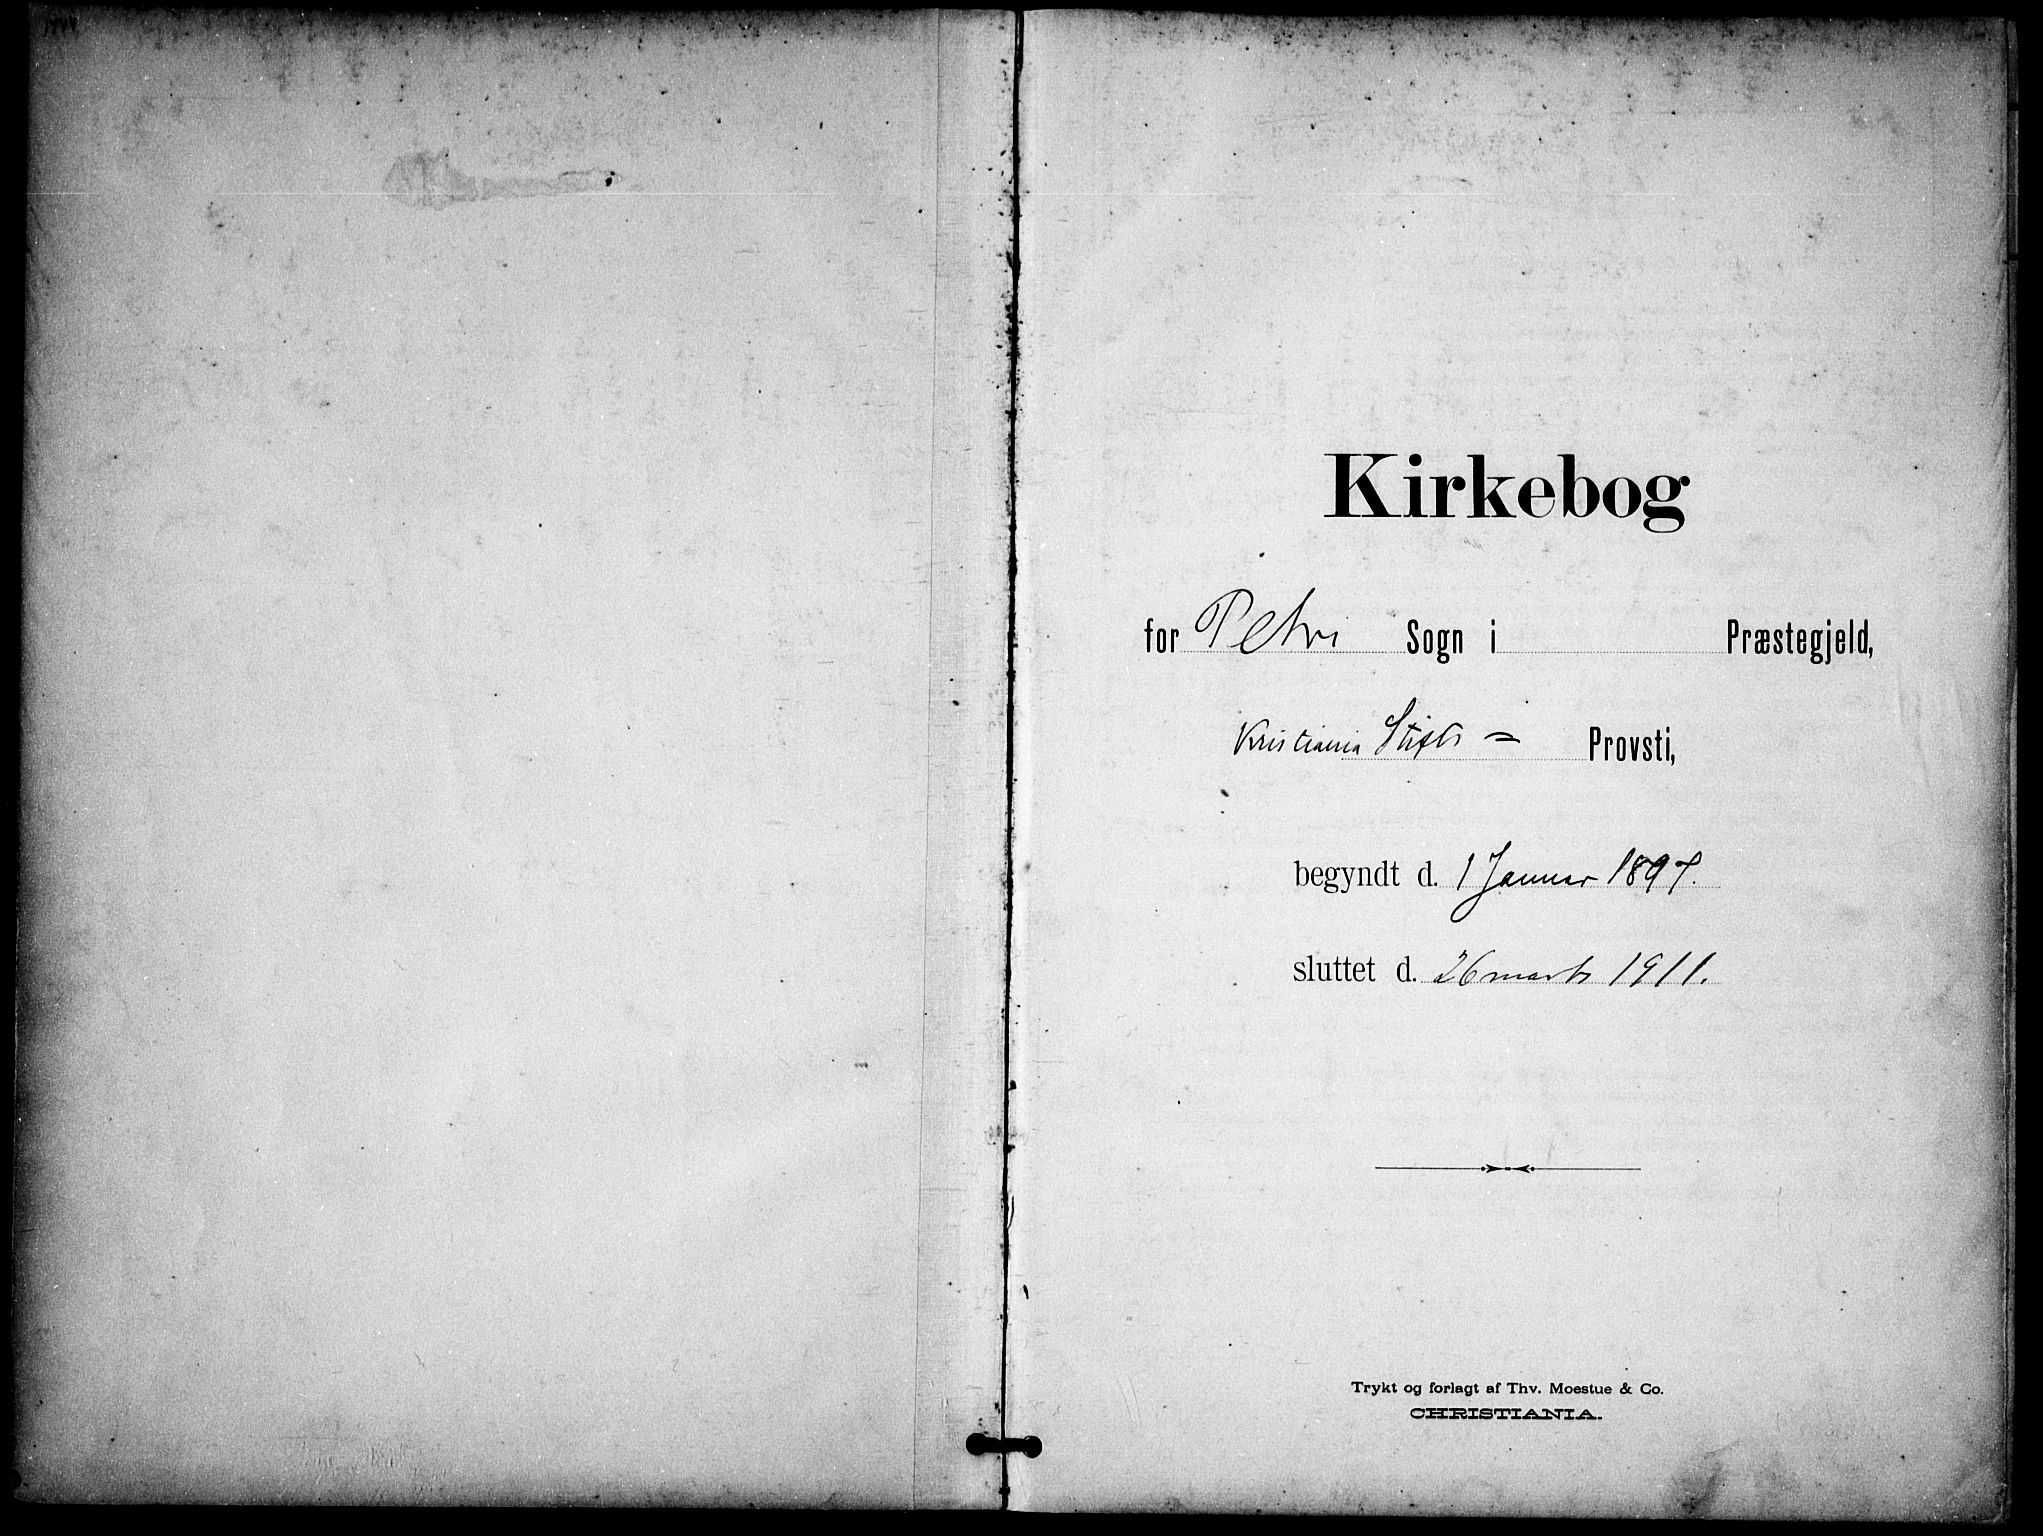 Kirkebog
for Petri Sogn i Præstegjeld,
Kristiania Stifts = Provsti,
begyndt d. 1 Januar 1897.
sluttet d. 26 marts 1911.
Trykt og forlagt af Thv. Moestue & Co.
CHRISTIANIA.